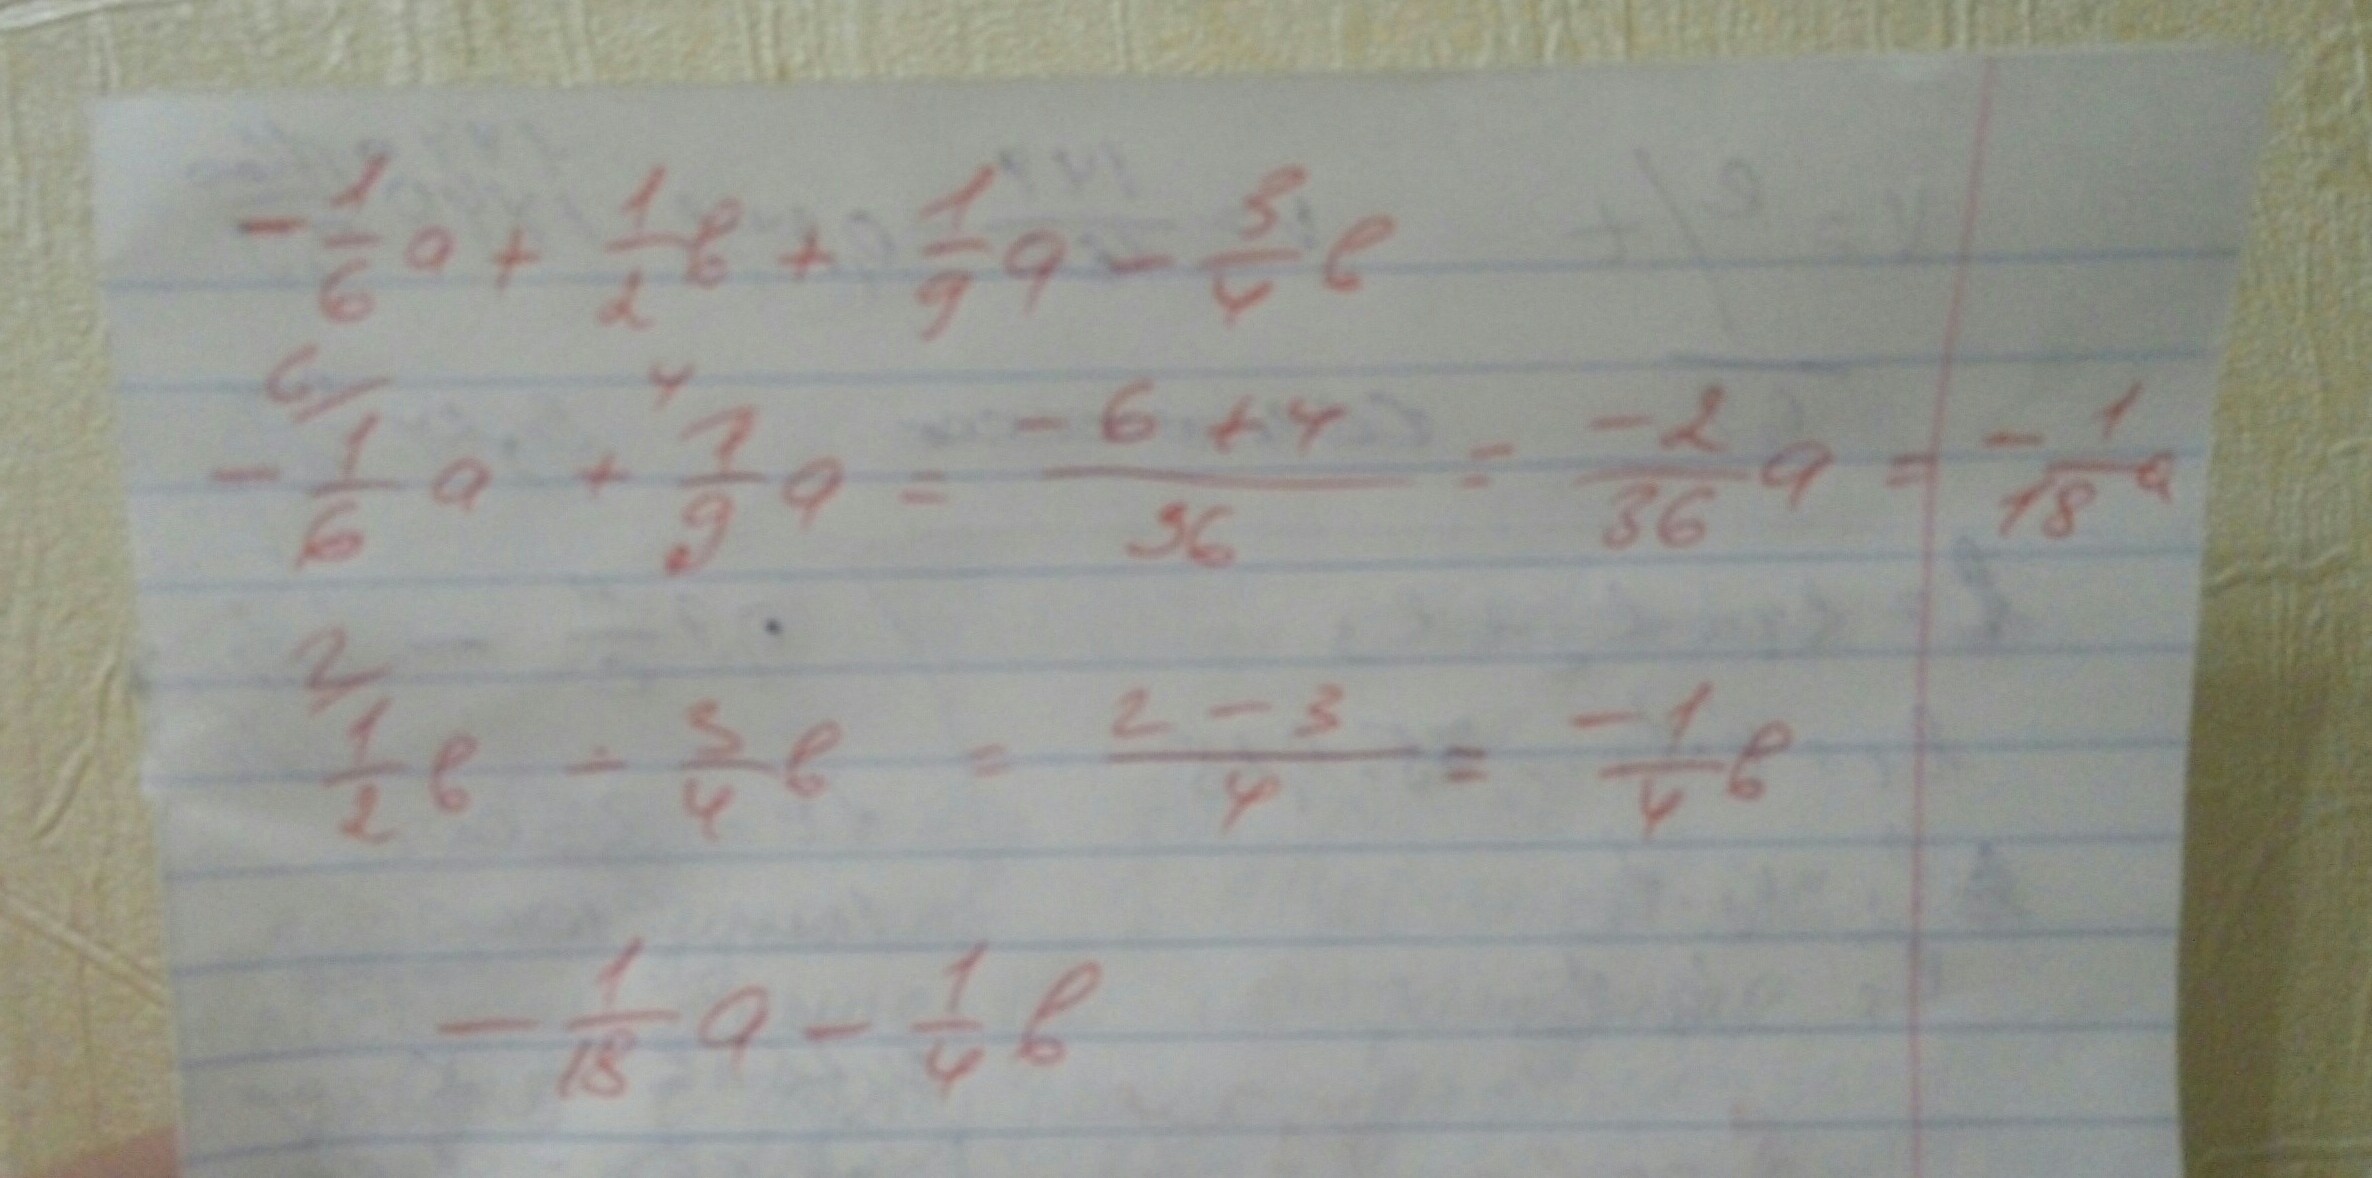 -1/6 a + 1/2 b + 1/9 a - 3/4 b
6/ 4
-1/6 a + 1/9 a = -6+4/36 = -2/36 a = -1/18 a
2/
1/2 b - 3/4 b = 2-3/4 = -1/4 b
-1/18 a - 1/4 b